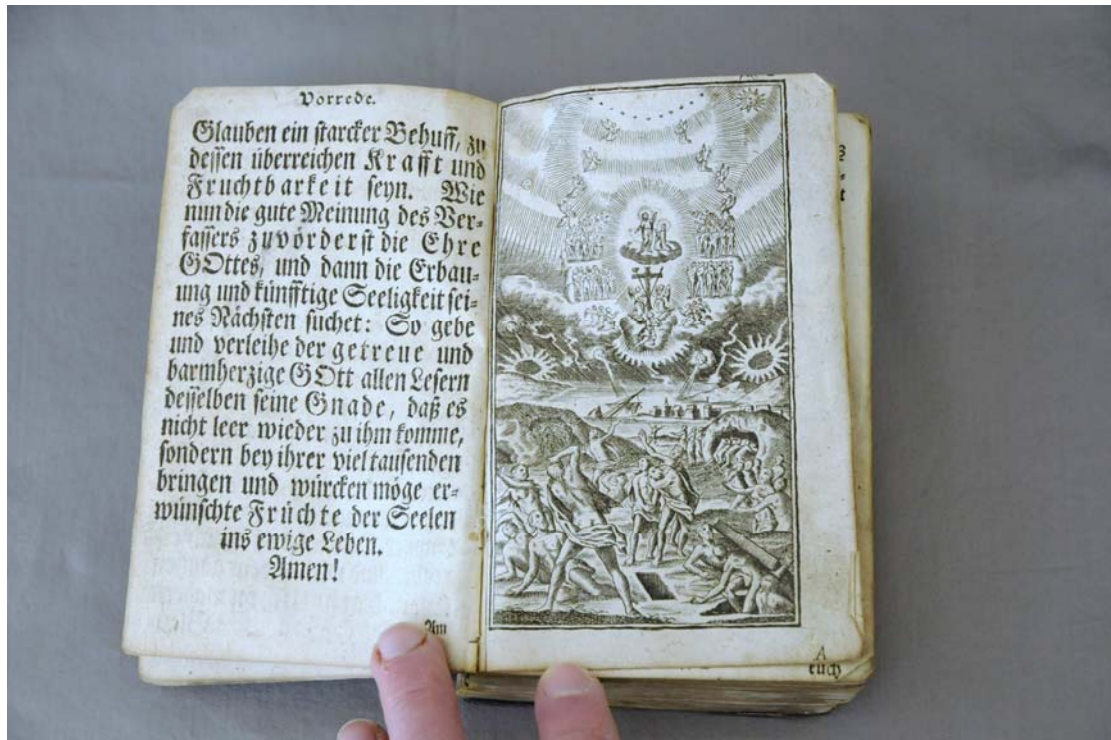 Vorrede.
Glauben ein starcker Behuff, zu
dessen überreichen Krafft und
Fruchtbarkeit seyn. Wie
nun die gute Meinung des Ver-
fassers zuvörderst die Ehre
GOttes, und dann die Erbau-
ung und künfftige Seeligkeit sei-
nes Nächsten suchet: So gebe
und verleihe der getreue und
barmherzige GOtt allen Lesern
desselben seine Gnade, daß es
nicht leer wieder zu ihm komme,
sondern bey ihrer viel tausenden
bringen und würcken möge er-
wünschte Früchte der Seelen
ins ewige Leben.
Amen!
Am
A
euch